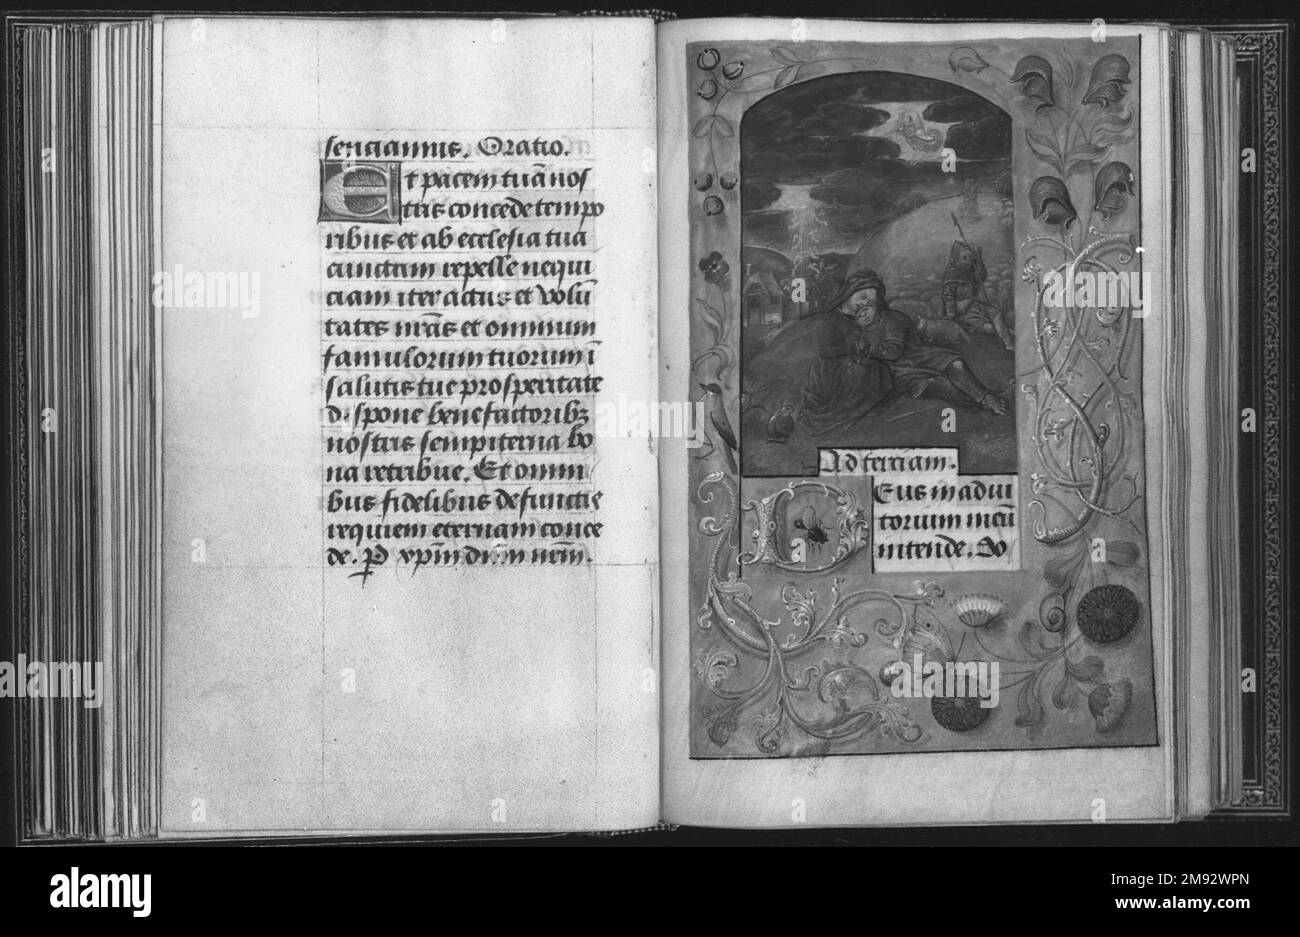 sentiamus. Oratio.
Et pacem tuā nos
tris concede tempo
ribus et ab ecclesia tua
cunctam repelle nequi
ciam iter actus et volū
tates nr̄as et omnium
famulorum tuorum ī
salutis tue prosperitate
dispone benefactorib
nostris sempiterna bo
na retribue. Et omni
bus fidelibus defunctis
requiem eternam conce
de. P xp̄m dnm nrm̄.
Ad terciam.
Deus in adiu
torium meū
intende. Do
alamy
Image ID: 2M92WPN
www.alamy.com